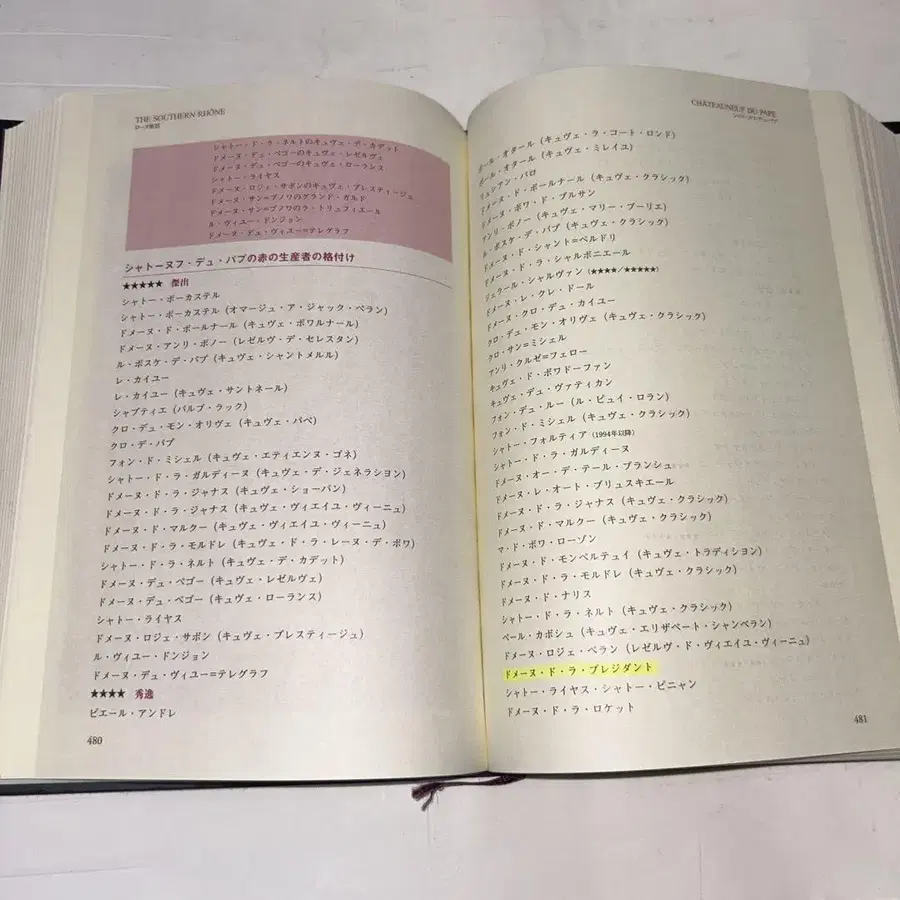 THE SOUTHERN RHÔNE
ローヌ南部
シャトー・ド・ラ・ネルトのキュヴェ・デ・カデット
ドメーヌ・デュ・ペゴーのキュヴェ・レゼルヴェ
ドメーヌ・デュ・ペゴーのキュヴェ・ローランス
シャトー・ライヤス
ドメーヌ・ロジェ・サボンのキュヴェ・プレスティージュ
ドメーヌ・サン=ブノワのグランド・ガルド
ドメーヌ・サン=ブノワのラ・トリュフィエール
ル・ヴィユー・ドンジョン
ドメーヌ・デュ・ヴィユー=テレグラフ
シャトーヌフ・デュ・パプの赤の生産者の格付け
★★★★★ 傑出
シャトー・ボーカステル
シャトー・ボーカステル（オマージュ・ア・ジャック・ペラン）
ドメーヌ・ド・ボールナール（キュヴェ・ボワルナール）
ドメーヌ・アンリ・ボノー（レゼルヴ・デ・セレスタン）
ル・ボスケ・デ・パプ（キュヴェ・シャントメルル）
レ・カイユー
レ・カイユー（キュヴェ・サントネール）
シャプティエ（バルブ・ラック）
クロ・デュ・モン・オリヴェ（キュヴェ・パペ）
クロ・デ・パプ
フォン・ド・ミシェル（キュヴェ・エティエンヌ・ゴネ）
シャトー・ド・ラ・ガルディーヌ（キュヴェ・デ・ジェネラシヨン）
ドメーヌ・ド・ラ・ジャナス（キュヴェ・ショーパン）
ドメーヌ・ド・ラ・ジャナス（キュヴェ・ヴィエイユ・ヴィーニュ）
ドメーヌ・ド・マルクー（キュヴェ・ヴィエイユ・ヴィーニュ）
ドメーヌ・ド・ラ・モルドレ（キュヴェ・ド・ラ・レーヌ・デ・ボワ）
シャトー・ド・ラ・ネルト（キュヴェ・デ・カデット）
ドメーヌ・デュ・ペゴー（キュヴェ・レゼルヴェ）
ドメーヌ・デュ・ペゴー（キュヴェ・ローランス）
シャトー・ライヤス
ドメーヌ・ロジェ・サボン（キュヴェ・プレスティージュ）
ル・ヴィユー・ドンジョン
ドメーヌ・デュ・ヴィユー=テレグラフ
★★★★ 秀逸
ピエール・アンドレ
480
CHÂTEAUNEUF DU PAPE
シャトーヌフ・デュ・パプ
ポール・オタール（キュヴェ・ラ・コート・ロンド）
ポール・オタール（キュヴェ・ミレイユ）
リュシアン・バロ
ドメーヌ・ド・ボールナール（キュヴェ・クラシック）
ドメーヌ・ボワ・ド・ブルサン
アンリ・ボノー（キュヴェ・マリー・ブーリエ）
ル・ボスケ・デ・パプ（キュヴェ・クラシック）
ドメーヌ・ド・シャント=ペルドリ
ドメーヌ・ド・ラ・シャルボニエール
ジェラール・シャルヴァン（★★★★／★★★★★）
ドメーヌ・レ・クレ・ドール
ドメーヌ・クロ・デュ・カイユー
クロ・デュ・モン・オリヴェ（キュヴェ・クラシック）
クロ・サン=ミシェル
アンリ・クルゼ=フェロー
キュヴェ・ド・ボワドーファン
キュヴェ・デュ・ヴァティカン
フォン・デュ・ルー（ル・ピュイ・ロラン）
フォン・ド・ミシェル（キュヴェ・クラシック）
シャトー・フォルティア（1994年以降）
シャトー・ド・ラ・ガルディーヌ
ドメーヌ・オー・デ・テール・ブランシュ
ドメーヌ・レ・オート・ブリュスキエール
ドメーヌ・ド・ラ・ジャナス（キュヴェ・クラシック）
ドメーヌ・ド・マルクー（キュヴェ・クラシック）
マ・ド・ボワ・ローゾン
ドメーヌ・ド・モンペルテュイ（キュヴェ・トラディシヨン）
ドメーヌ・ド・ラ・モルドレ（キュヴェ・クラシック）
ドメーヌ・ド・ナリス
シャトー・ド・ラ・ネルト（キュヴェ・クラシック）
ペール・カボシュ（キュヴェ・エリザベート・シャンベラン）
ドメーヌ・ロジェ・ペラン（レゼルヴ・ド・ヴィエイユ・ヴィーニュ）
ドメーヌ・ド・ラ・プレジダント
シャトー・ライヤス・シャトー・ピニャン
ドメーヌ・ド・ラ・ロケット
481